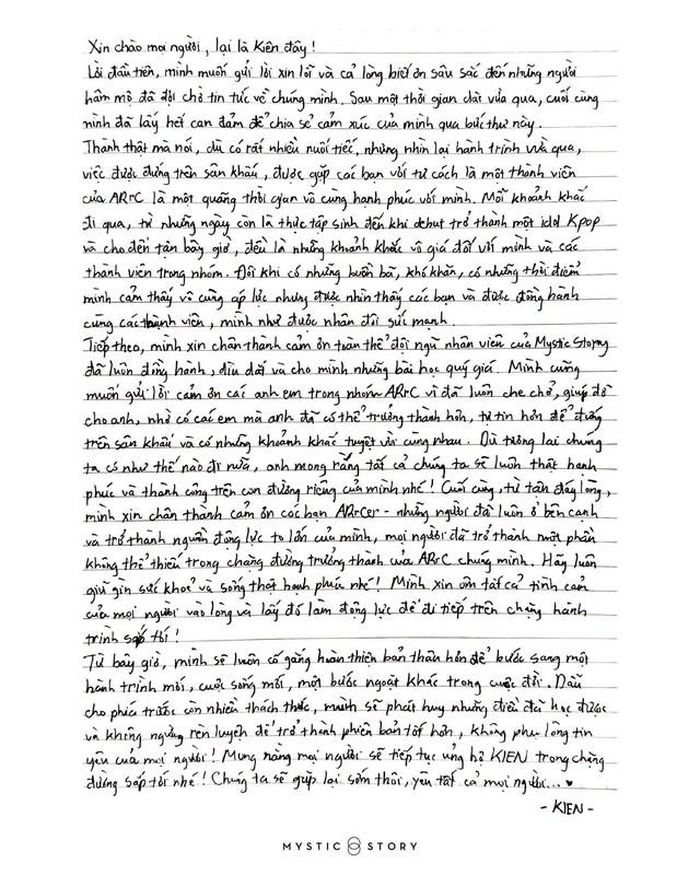 Xin chào mọi người, lại là Kiên đây!
Lời đầu tiên, mình muốn gửi lời xin lỗi và cả lòng biết ơn sâu sắc đến những người
hâm mộ đã đợi chờ tin tức về chúng mình. Sau một thời gian dài vừa qua, cuối cùng
mình đã lấy hết can đảm để chia sẻ cảm xúc của mình qua bức thư này.
Thành thật mà nói, dù có rất nhiều nuối tiếc, nhưng nhìn lại hành trình vừa qua,
việc được đứng trên sân khấu, được gặp các bạn với tư cách là một thành viên
của ARrC là một quãng thời gian vô cùng hạnh phúc với mình. Mỗi khoảnh khắc
đi qua, từ những ngày còn là thực tập sinh đến khi debut trở thành một idol Kpop
và cho đến tận bây giờ, đều là những khoảnh khắc vô giá đối với mình và các
thành viên trong nhóm. Đôi khi có những buồn bã, khó khăn, có những thời điểm
mình cảm thấy vô cùng áp lực nhưng được nhìn thấy các bạn và được đồng hành
cùng các thành viên, mình như được nhân đôi sức mạnh.
Tiếp theo, mình xin chân thành cảm ơn toàn thể đội ngũ nhân viên của Mystic Story
đã luôn đồng hành, dìu dắt và cho mình những bài học quý giá. Mình cũng
muốn gửi lời cảm ơn các anh em trong nhóm ARrC vì đã luôn che chở, giúp đỡ
cho anh, nhờ có các em mà anh đã có thể trưởng thành hơn, tự tin hơn để đứng
trên sân khấu và có những khoảnh khắc tuyệt vời cùng nhau. Dù tương lai chúng
ta có như thế nào đi nữa, anh mong rằng tất cả chúng ta sẽ luôn thật hạnh
phúc và thành công trên con đường riêng của mình nhé! Cuối cùng, từ tận đáy lòng,
mình xin chân thành cảm ơn các bạn ARrCer - những người đã luôn ở bên cạnh
và trở thành nguồn động lực to lớn của mình, mọi người đã trở thành một phần
không thể thiếu trong chặng đường trưởng thành của ARrC chúng mình. Hãy luôn
giữ gìn sức khoẻ và sống thật hạnh phúc nhé! Mình xin ôm tất cả tình cảm
của mọi người vào lòng và lấy đó làm động lực để đi tiếp trên chặng hành
trình sắp tới!
Từ bây giờ, mình sẽ luôn cố gắng hoàn thiện bản thân hơn để bước sang một
hành trình mới, cuộc sống mới, một bước ngoặt khác trong cuộc đời. Dẫu
cho phía trước còn nhiều thách thức, mình sẽ phát huy những điều đã học được
và không ngừng rèn luyện để trở thành phiên bản tốt hơn, không phụ lòng tin
yêu của mọi người! Mong rằng mọi người sẽ tiếp tục ủng hộ KIEN trong chặng
đường sắp tới nhé! Chúng ta sẽ gặp lại sớm thôi, yêu tất cả mọi người... ♥
- KIEN -
MYSTIC STORY